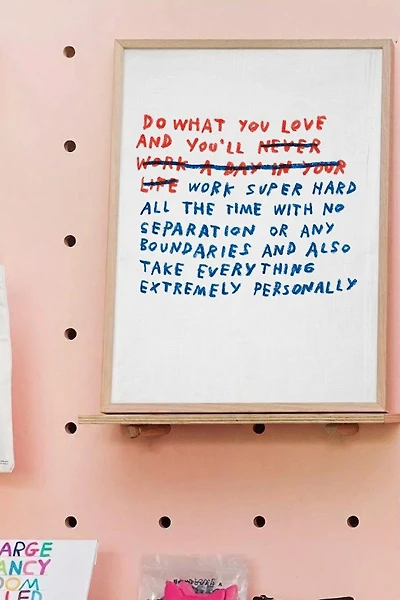 DO WHAT YOU LOVE
AND YOU'LL NEVER
WORK A DAY IN YOUR
LIFE WORK SUPER HARD
ALL THE TIME WITH NO
SEPARATION OR ANY
BOUNDARIES AND ALSO
TAKE EVERYTHING
EXTREMELY PERSONALLY
ARGE
ANCY
OOM
LED